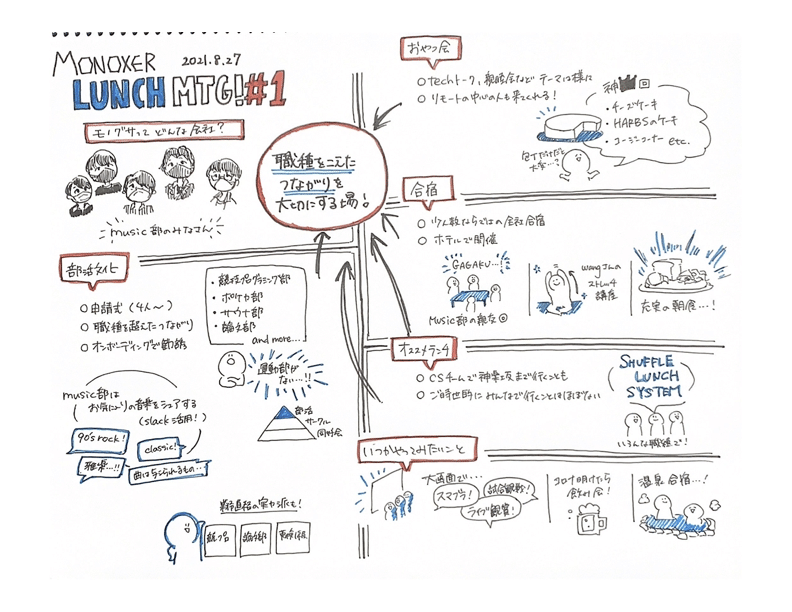 MONOXER 2021.8.27
LUNCH MTG! #1
モノグサってどんな会社?
music部のみなさん
職種をこえた
つながりを
大切にする場!
おやつ会
○ techトーク、親睦会など テーマは様々
○ リモートの中心の人も来てくれる!
神回
・チーズケーキ
・HARBSのケーキ
・コージーコーナー etc.
包丁だけだと
大変…?
合宿
○ 少人数ならではの会社合宿
○ ホテルで開催
GAGAKU…!
Music部の親友
wangさんの
ストレッチ
講座
充実の朝食…!
部活文化
○ 申請式 (4人〜)
○ 職種を超えたつながり
○ オンボーディングで勧誘
・競技プログラミング部
・ポケカ部
・サウナ部
・論文部
and more…
運動部が
ない…!!
部活
サークル
同好会
music部は
お気に入りの音楽をシェアする
(slack活用!)
90's rock!
classic!
雅楽…!!
曲は与えられるもの…
オススメランチ
○ CSチームで神楽坂まで行くことも
○ ご時世的にみんなで行くことはほぼない
SHUFFLE
LUNCH
SYSTEM
いろんな職種で!
いつかやってみたいこと
大画面で…
スマブラ!
試合観戦!
ライブ鑑賞!
コロナ明けたら
飲み会!
温泉合宿…!